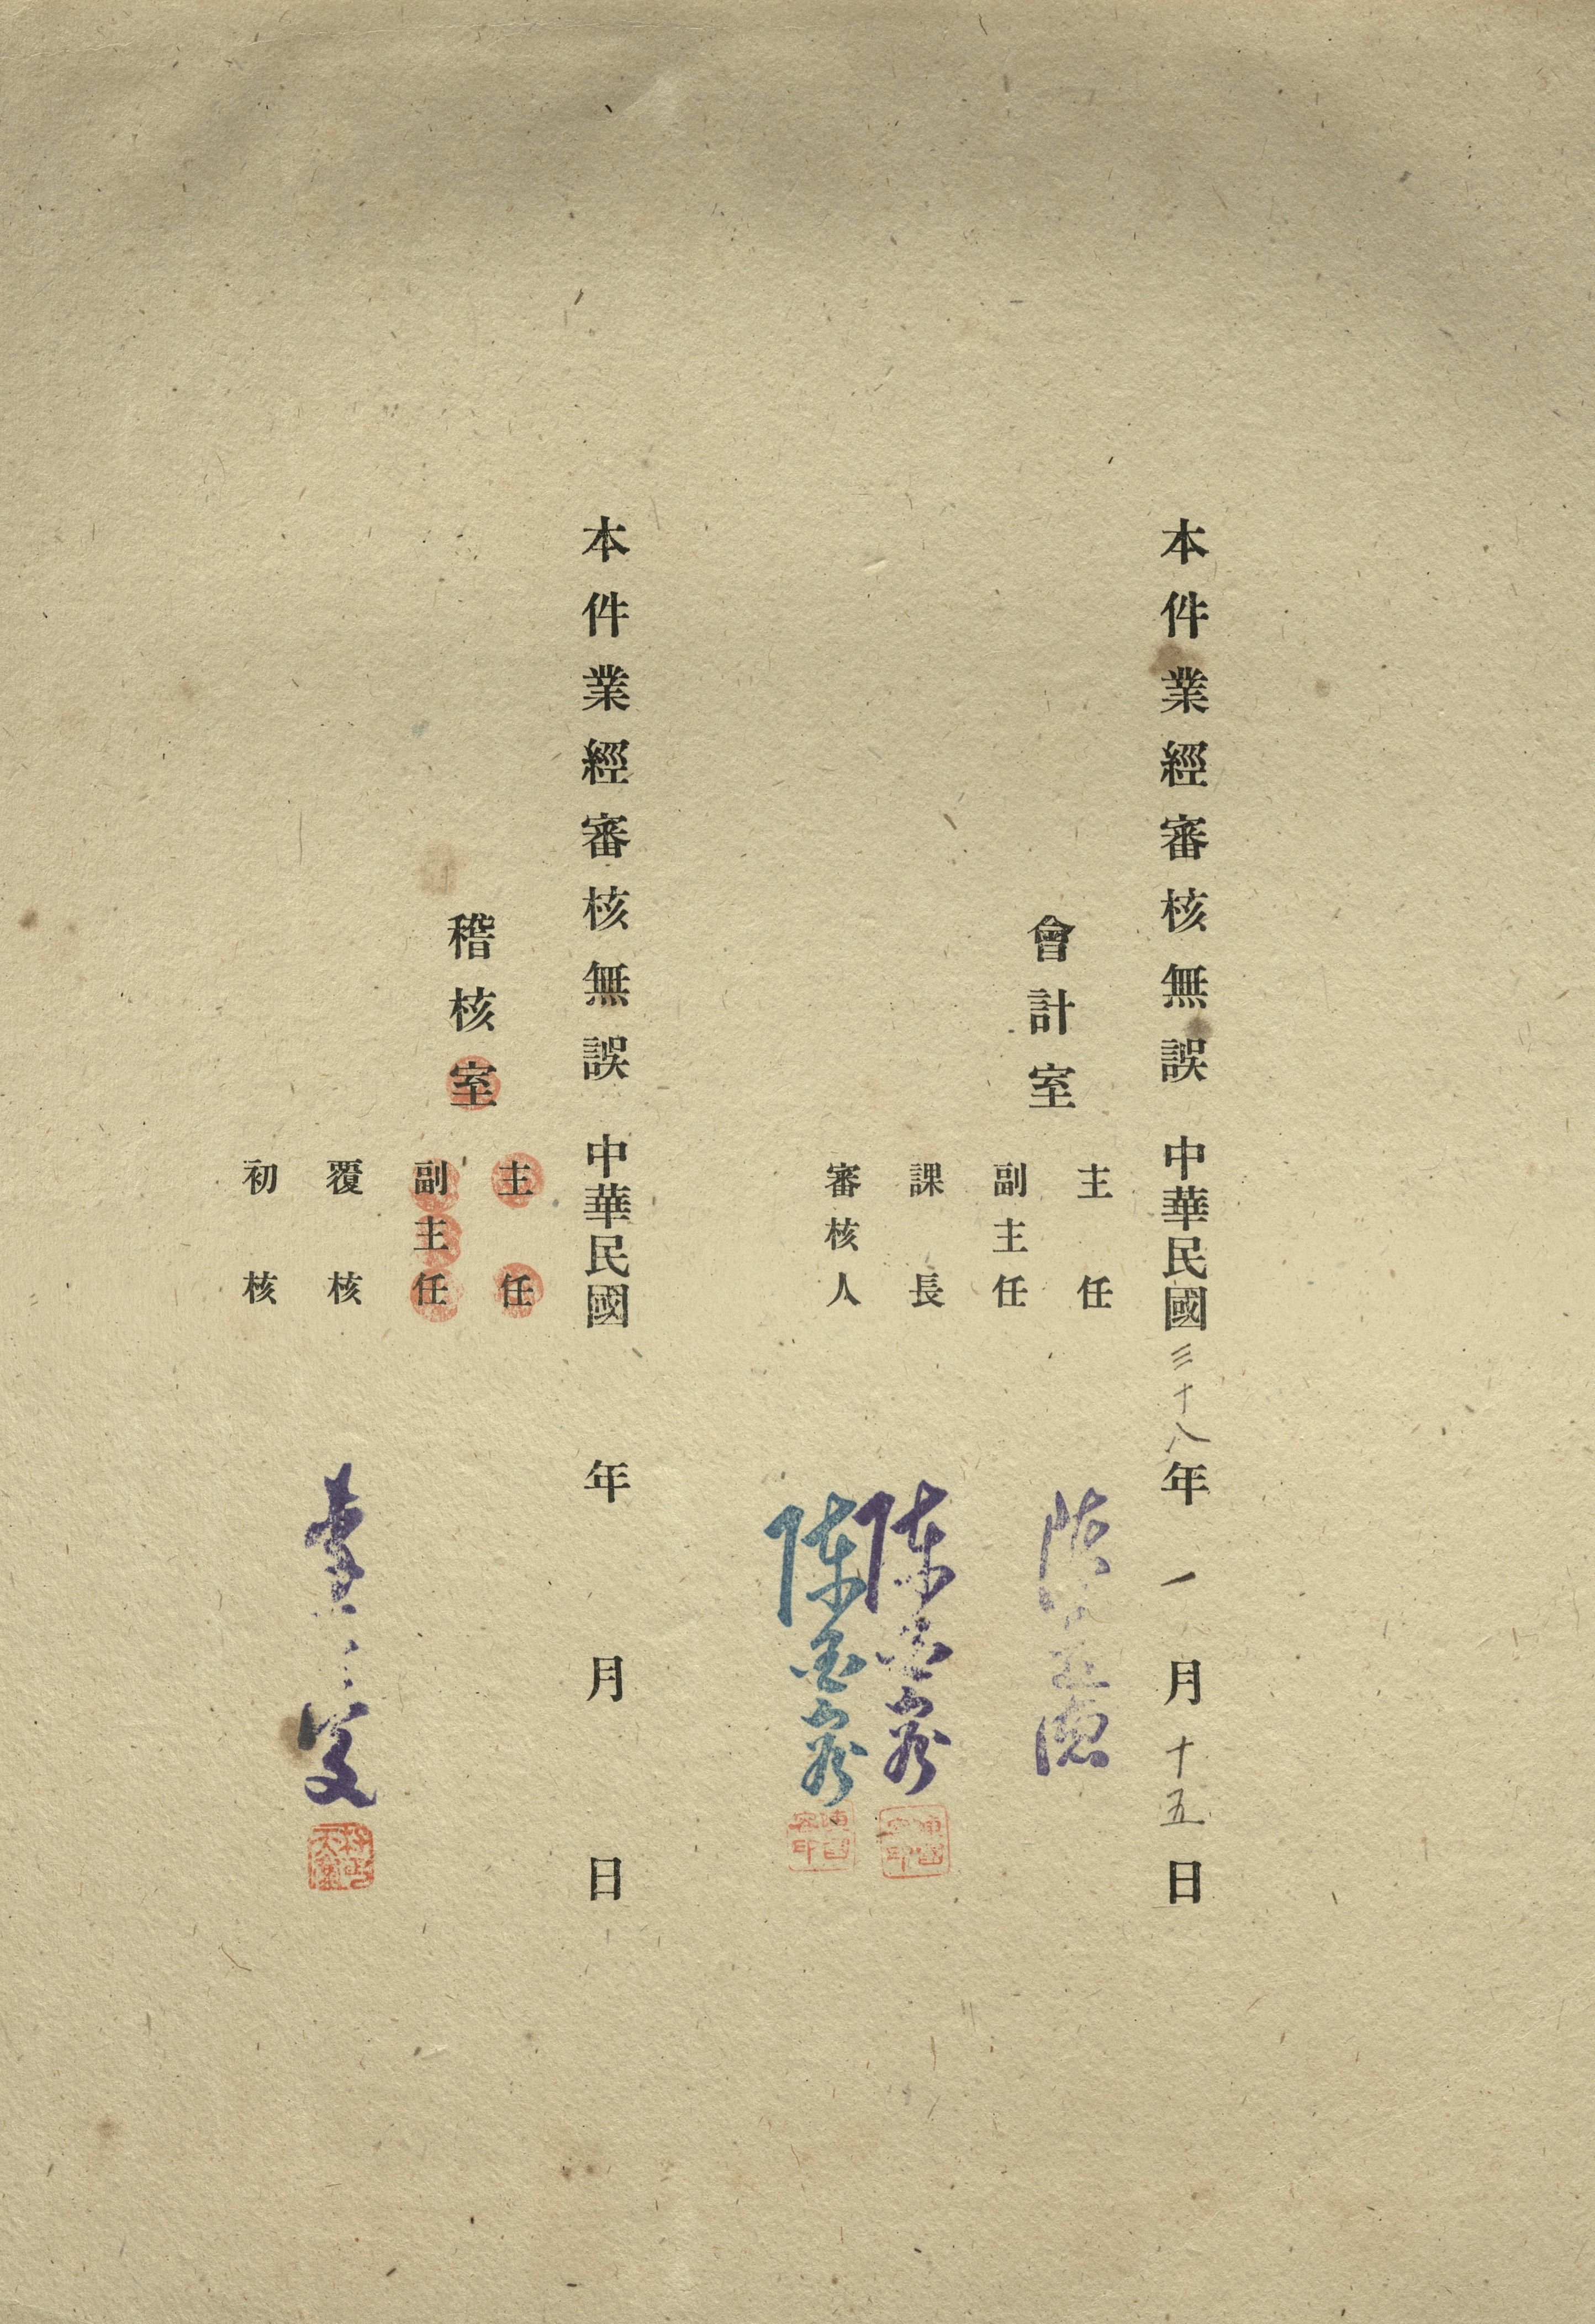 本件業經審核無誤 中華民國三十八年一月十五日
會計室
主任
副主任
課長
審核人
本件業經審核無誤 中華民國 年 月 日
稽核室
主任
副主任
覆核
初核